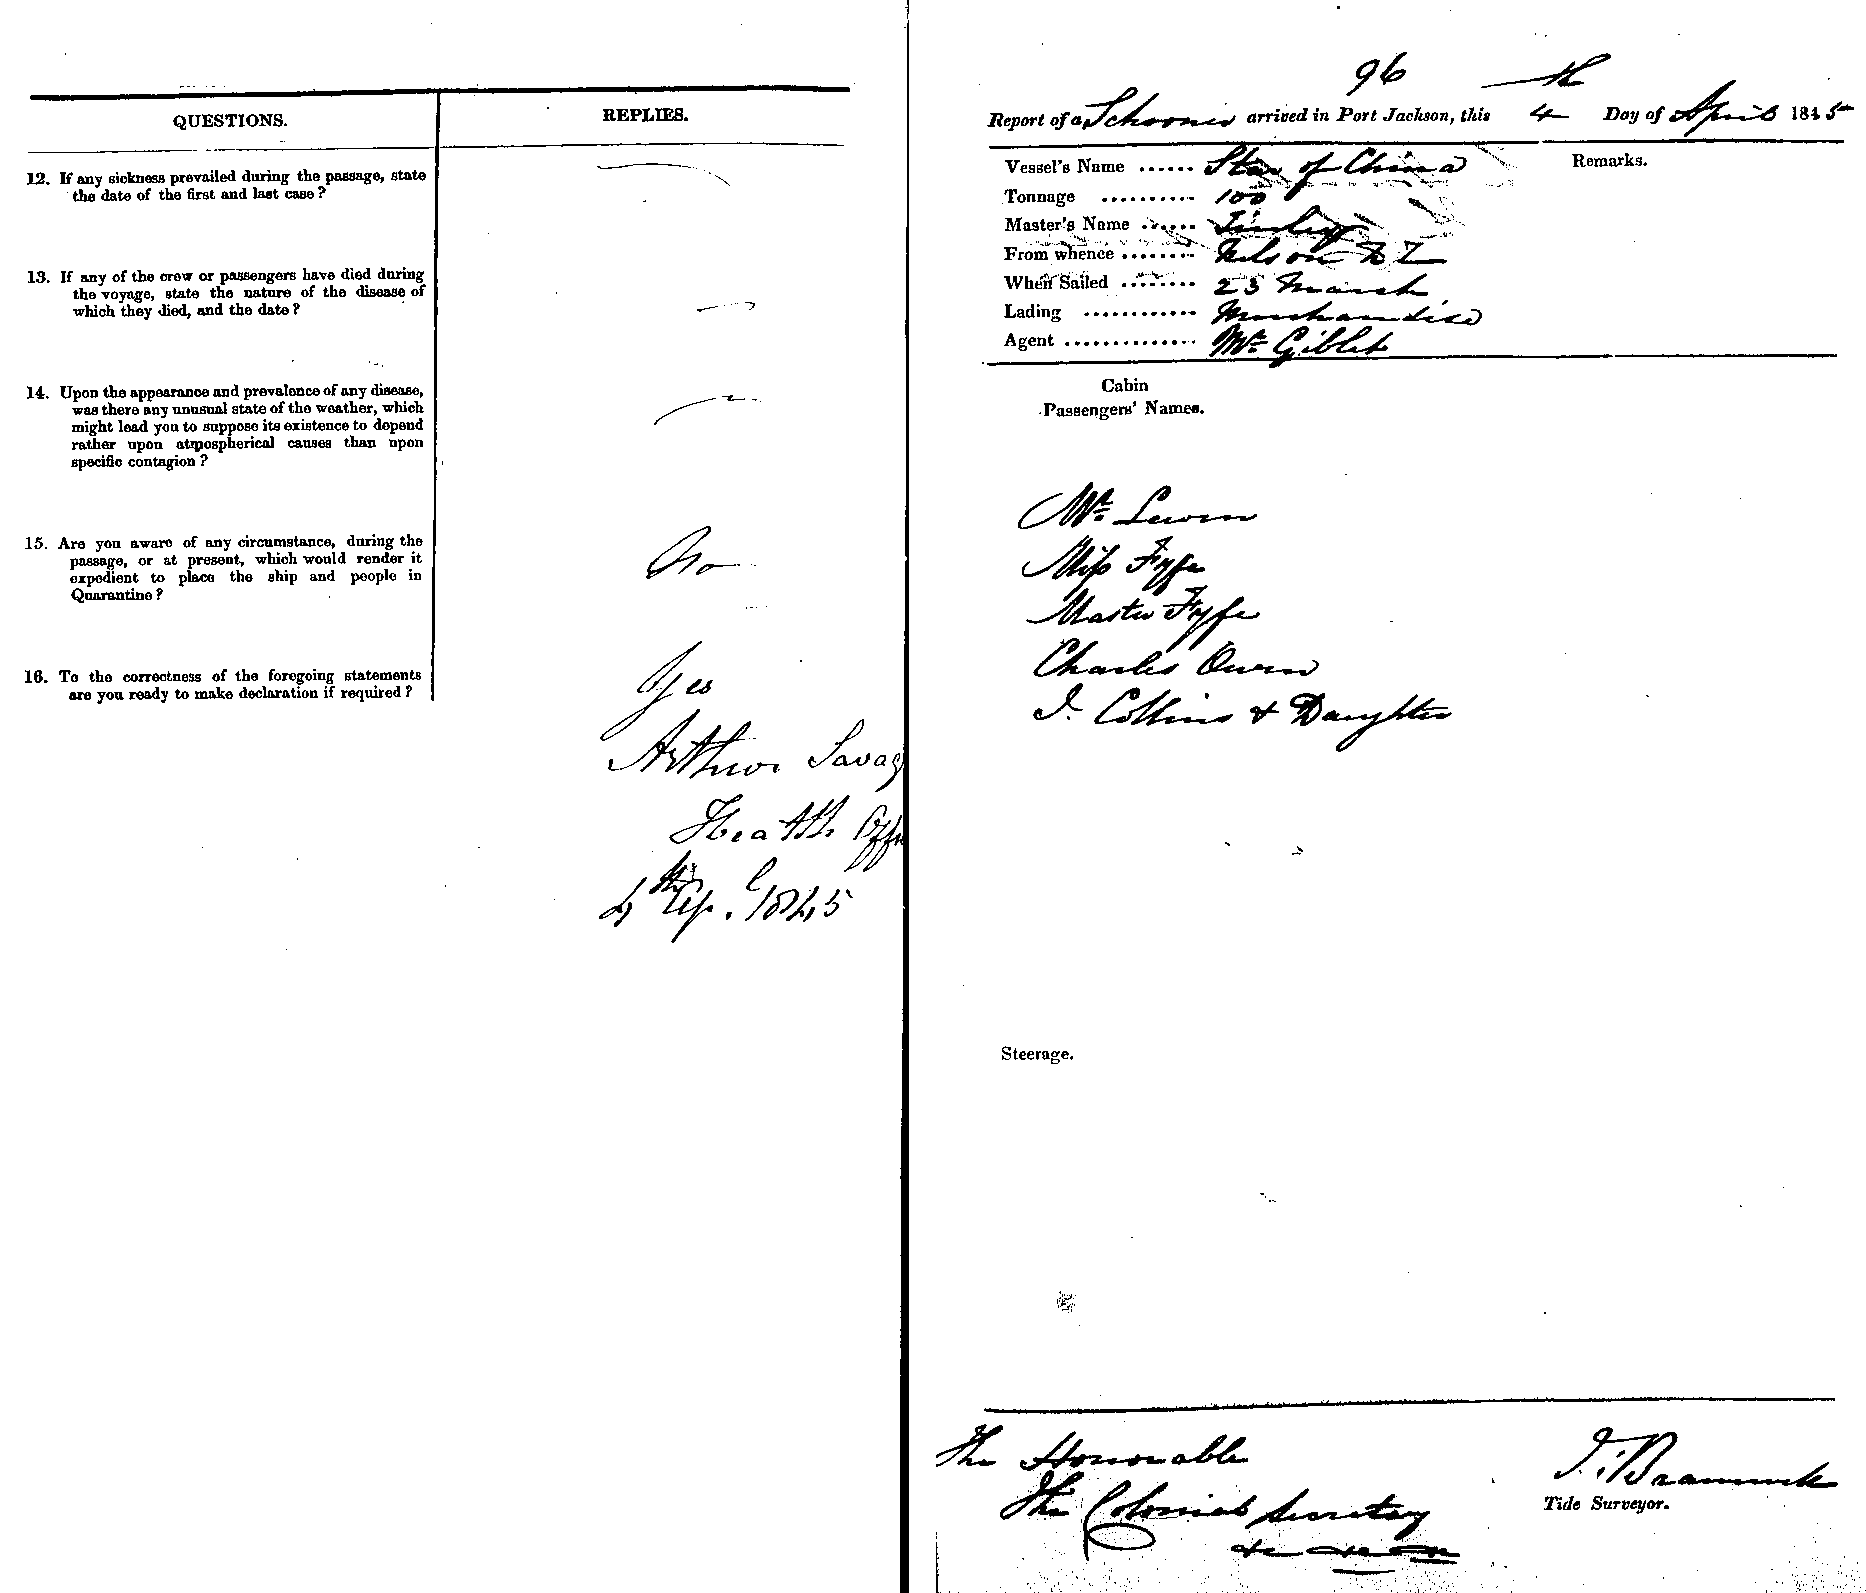 QUESTIONS.
REPLIES.
12. If any sickness prevailed during the passage, state
the date of the first and last case?
13. If any of the crew or passengers have died during
the voyage, state the nature of the disease of
which they died, and the date?
14. Upon the appearance and prevalence of any disease,
was there any unusual state of the weather, which
might lead you to suppose its existence to depend
rather upon atmospherical causes than upon
specific contagion?
15. Are you aware of any circumstance, during the
passage, or at present, which would render it
expedient to place the ship and people in
Quarantine?
No
16. To the correctness of the foregoing statements
are you ready to make declaration if required?
Yes
Arthur Savag
Health Offi
4th Apl. 1845
96
Report of a Schooner arrived in Port Jackson, this 4th Day of April 1845
Vessel's Name ...... Star of China
Remarks.
Tonnage .......... 100
Master's Name ......
From whence ........ Nelson N Z
When Sailed ........ 23 March
Lading ............ Merchandise
Agent .............. Mr. Giblet
Cabin
Passengers' Names.
Mr.
Miss Fyfe
Master Fyfe
Charles Owen
J. Collins & Daughter
Steerage.
The Honorable
The Colonial Secretary
&c &c &c
Tide Surveyor.